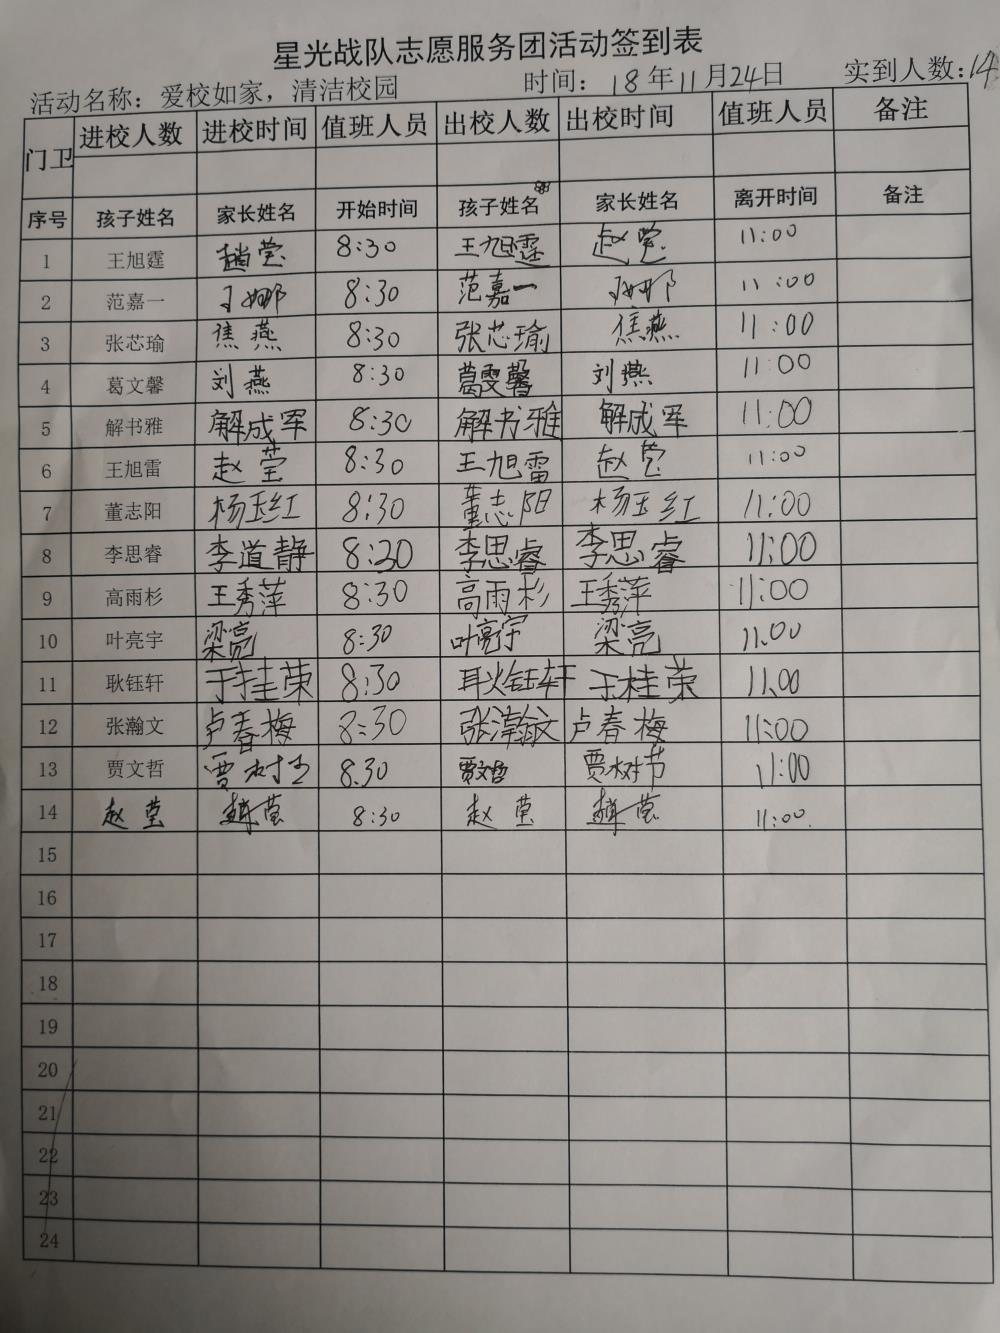 星光战队志愿服务团活动签到表
活动名称：爱校如家，清洁校园 时间：18年11月24日 实到人数：14
门卫 进校人数 进校时间 值班人员 出校人数 出校时间 值班人员 备注
序号 孩子姓名 家长姓名 开始时间 孩子姓名 家长姓名 离开时间 备注
1 王旭霆 趙莹 8:30 王旭霆 赵莹 11:00
2 范嘉一 王娜 8:30 范嘉一 王娜 11:00
3 张芯瑜 焦燕 8:30 张芯瑜 焦燕 11:00
4 葛文馨 刘燕 8:30 葛雯馨 刘燕 11:00
5 解书雅 解成军 8:30 解书雅 解成军 11:00
6 王旭雷 赵莹 8:30 王旭雷 赵莹 11:00
7 董志阳 杨玉红 8:30 董志阳 杨玉红 11:00
8 李思睿 李道静 8:30 李思睿 李思睿 11:00
9 高雨杉 王秀萍 8:30 高雨杉 王秀萍 11:00
10 叶亮宇 梁亮 8:30 叶亮宇 梁亮 11.00
11 耿钰轩 于桂荣 8:30 耿钰轩 于桂荣 11.00
12 张瀚文 卢春梅 8:30 张瀚文 卢春梅 11:00
13 贾文哲 贾树 8.30 贾文哲 贾树节 11:00
14 赵莹 趙莹 8:30 赵莹 趙莹 11:00
15
16
17
18
19
20
21
22
23
24